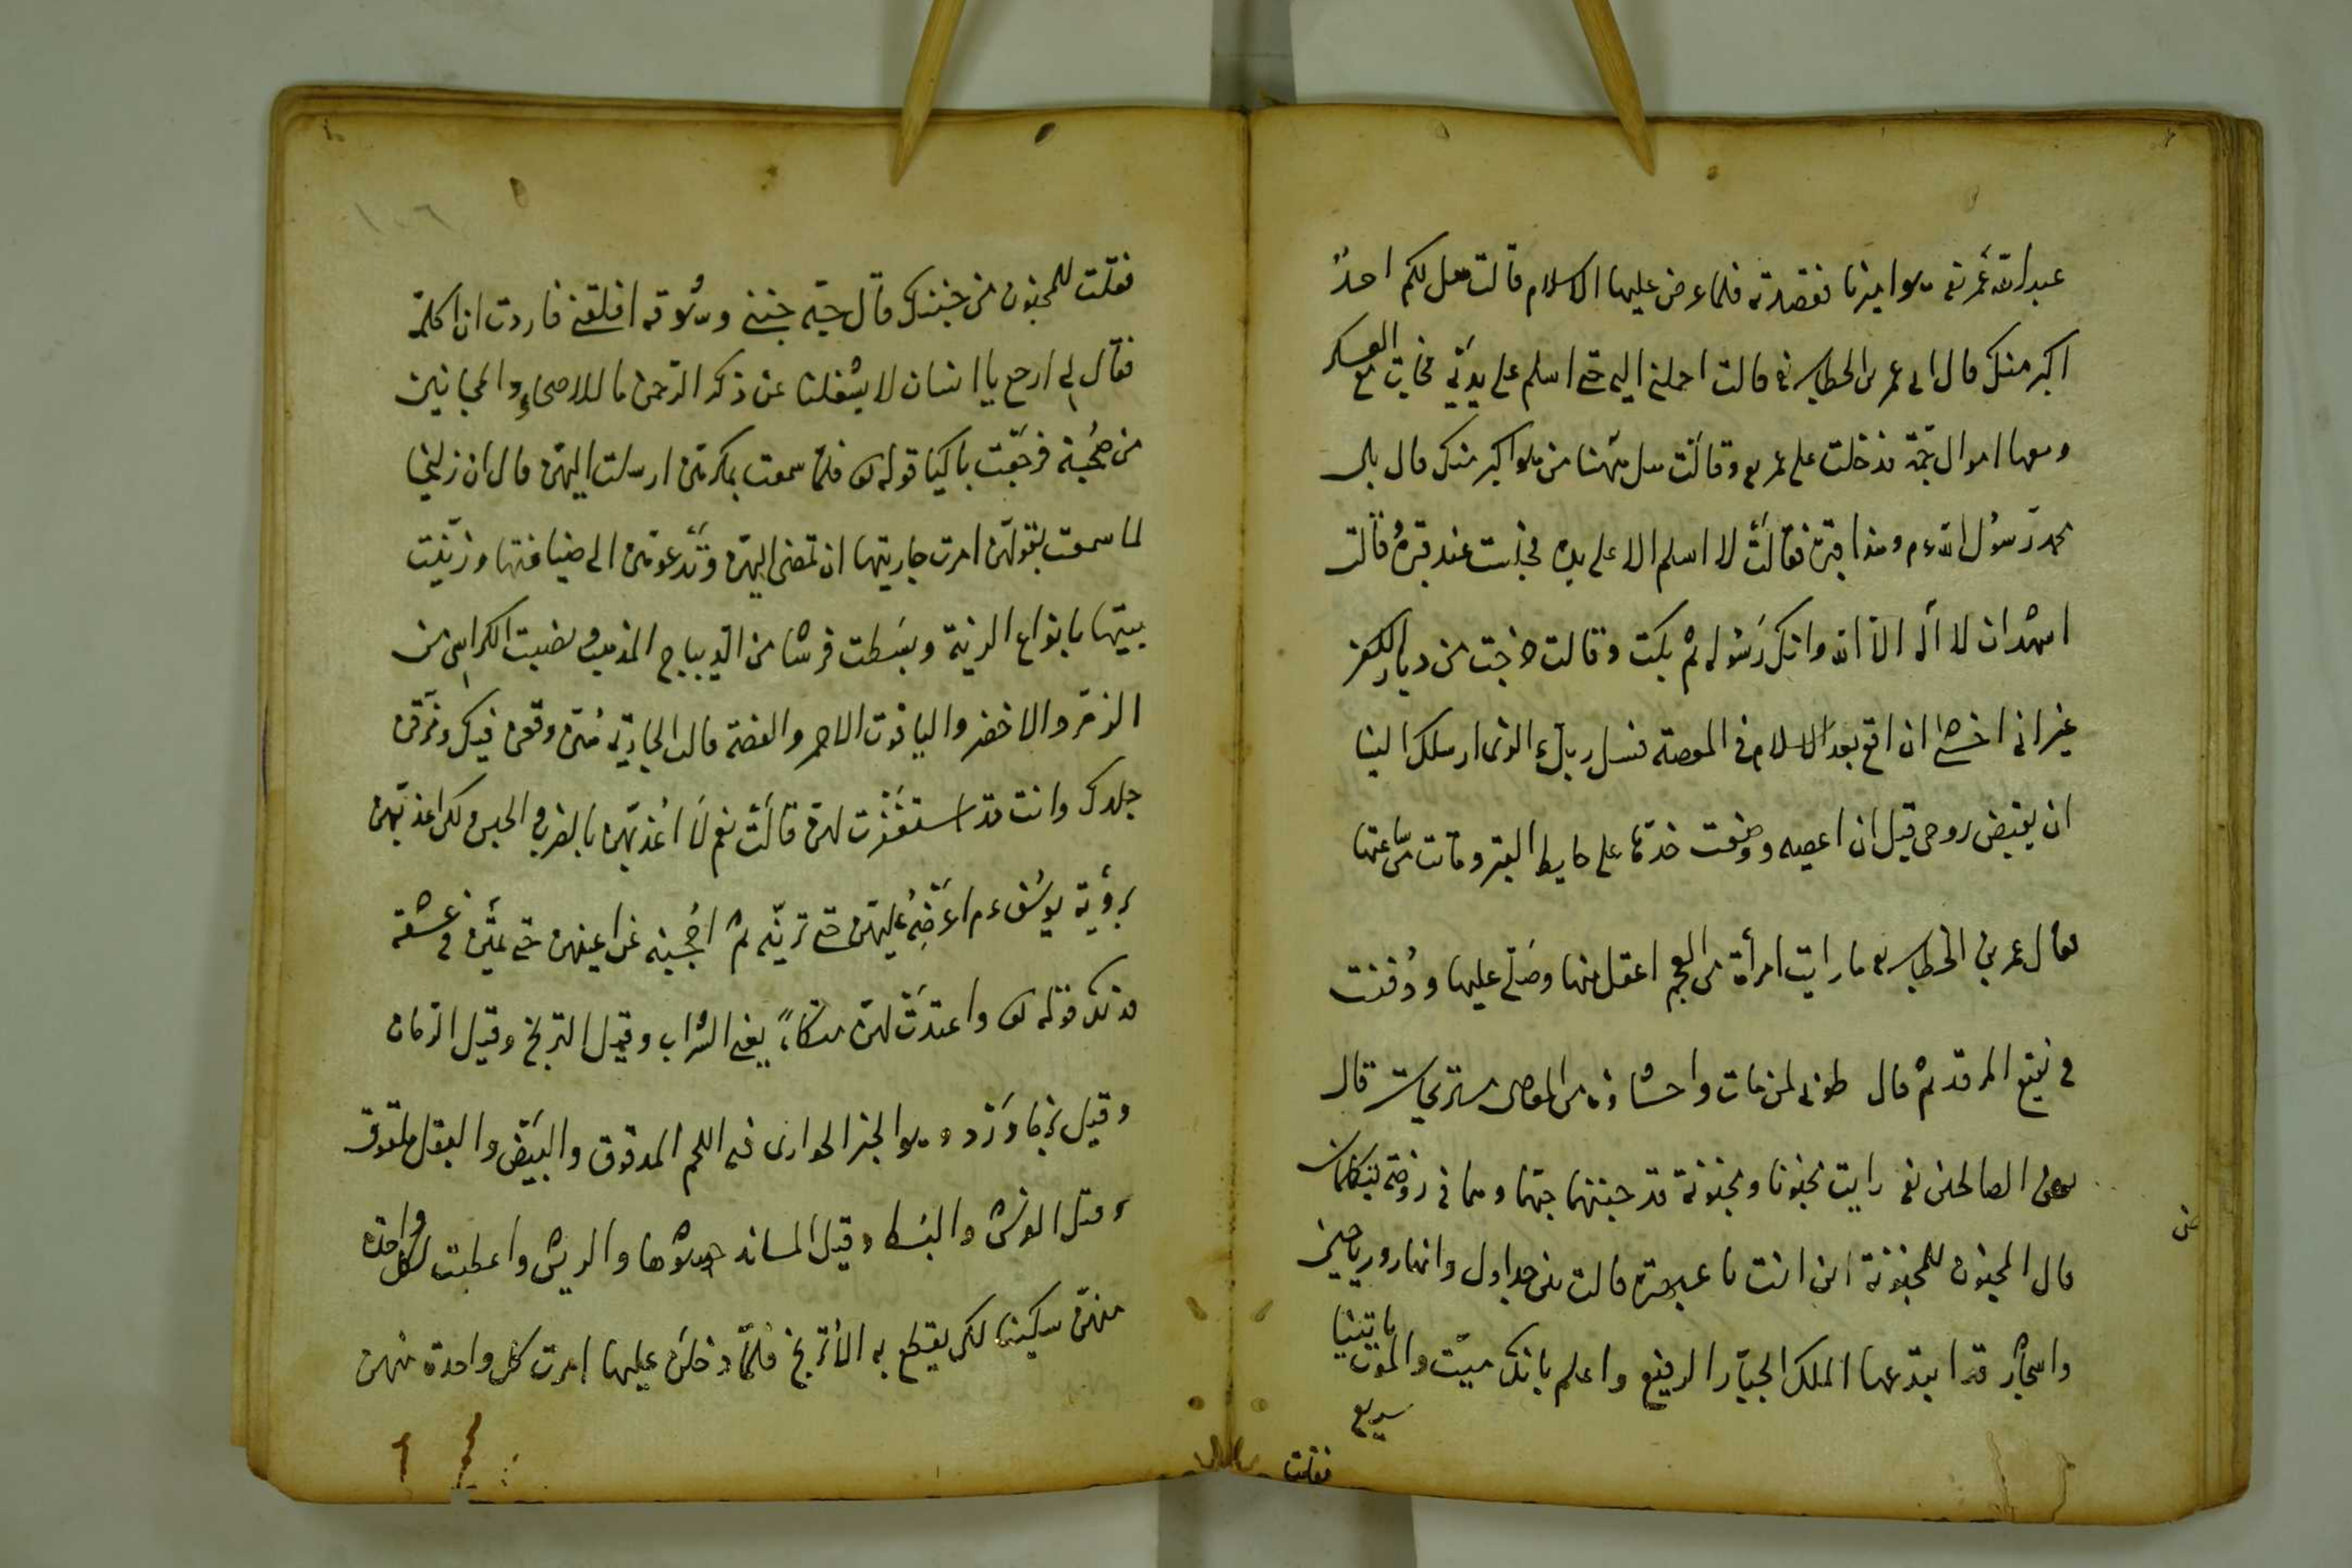 عبد الله عمر نه هوا ميرنا فقصدته فلما عرض عليها الاسلام قالت هل لكم احدٌ
اكبر منك قال الى عمر بن الخطاب رضه قالت احملنى اليه حتى اسلم على يديه فجاءت مع العسكر
ومعها اموال جمّة فدخلت على عمر رضه وقالت هل ههنا من هو اكبر منك قال بلى
محمد رسول الله عم وهذا قبره فقالت لا اسلم الا على يده فجاءت عند قبره قالت
اشهد ان لا اله الا الله وانك رسوله ثم بكت وقالت خرجت من ديار الكفر
غير انى اخشى ان اقع بعد الاسلام فى المعصية فسل ربك الذى ارسلك الينا
ان يقبض روحى قبل ان اعصيه ووضعت خدها على حايط القبر وماتت من ساعتها
فقال عمر بن الخطاب رضه ما رايت امرأة من العجم اعقل منها وصلّى عليها ودُفنت
فى بقيع الغرقد ثم قال طوبى لمن مات واحشاؤه من المعاصى مستريحات قال
بعض الصالحين رايت مجنونا ومجنونة قد جننهما حبّهما وهما فى روضة يتكلمان
قال المجنون للمجنونة اين انت يا قالت بين جداول وانهار ورياحين
واشجار قد ابتدعها الملك الجبّار الرفيع واعلم بانك ميّت والموت ياتينا
سريع
فقلت
من
١٠٦
فقلت للمجنون من جننك قال حبّه جننى وشوقه اقلقنى فاردت ان اكلمه
فقال لى ارجع يا انسان لا يشغلنا عن ذكر الرحمن ما للاصحاءِ والمجانين
من صُحبة فرجعت باكيا قوله تعالى فلمّا سمعت بمكرهنّ ارسلت اليهنّ قال ان زليخا
لما سمعت بقولهنّ امرت جاريتها ان تمضى اليهنّ وتدعوهنّ الى ضيافتها وزيّنت
بيتها بانواع الزينة وبسَطت فرشا من الدّيباج المذهب ونصبت الكراسى من
الزمرّد الاخضر والياقوت الاحمر والفضة قالت الجارية هُنّ وقعن فيك ومزّقن
جلدك وانت قد استغفرت لهنّ قالت نعم لا اعذّبهنّ بالضرب والحبس ولكن اعذبهنّ
برؤية يوسُف عم اعرضه عليهنّ حتى ترينّه ثم احجبه عن اعينهن حتى يمتن فى عشقه
فذلك قوله تعالى واعتدت لهنّ متكاءً يعنى الشراب وقيل الترنج وقيل الرمان
وقيل بزماورد وهو الخبز الحوارى فيه اللحم المدقوق والبَيض والبقل ملفوف
وقيل الفرش والبُسط وقيل المساند حشوها والريش واعطيت لكل واحدة
منهنّ سكينا لكى يقطع به الأترنج فلمّا دخلن عليها امرت كل واحدة منهن